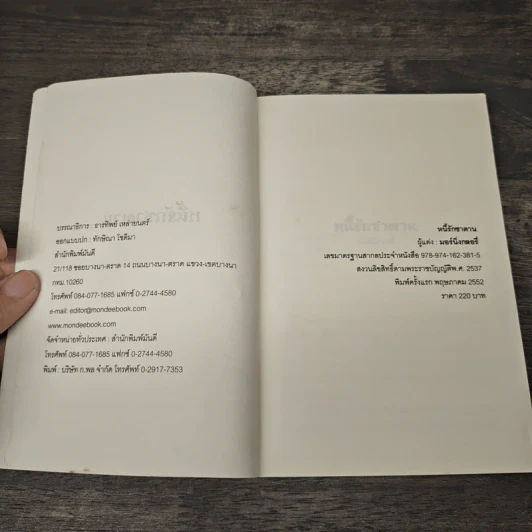 บรรณาธิการ : ธารทิพย์ เหล่ายนตร์
ออกแบบปก : ทักษิณา โชติมา
สำนักพิมพ์มันดี
21/118 ซอยบางนา-ตราด 14 ถนนบางนา-ตราด แขวง-เขตบางนา
กทม.10260
โทรศัพท์ 084-077-1685 แฟกซ์ 0-2744-4580
e-mail: editor@mondeebook.com
www.mondeebook.com
จัดจำหน่ายทั่วประเทศ : สำนักพิมพ์มันดี
โทรศัพท์ 084-077-1685 แฟกซ์ 0-2744-4580
พิมพ์ : บริษัท ก.พล จำกัด โทรศัพท์ 0-2917-7353
หนี้รักซาตาน
ผู้แต่ง : มอร์นิ่งกลอรี่
เลขมาตรฐานสากลประจำหนังสือ 978-974-162-381-5
สงวนลิขสิทธิ์ตามพระราชบัญญัติพ.ศ. 2537
พิมพ์ครั้งแรก พฤษภาคม 2552
ราคา 220 บาท